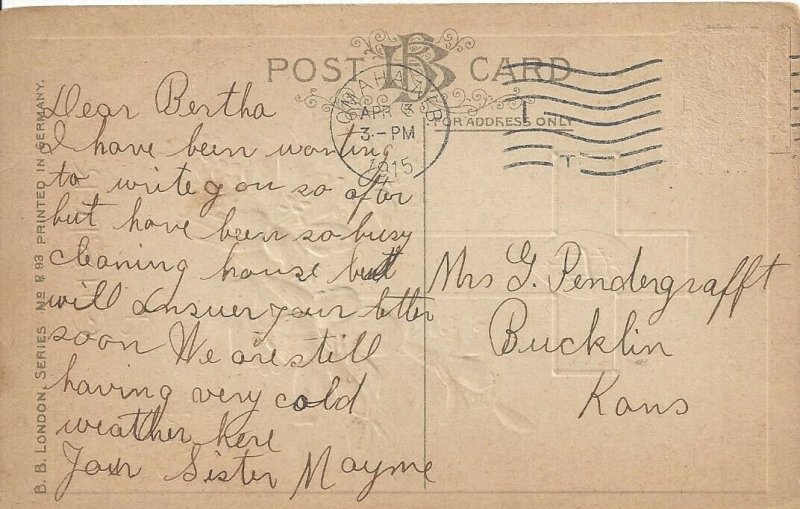 POST CARD
BB
OMAHA, NEB.
APR 3
3-PM
1915
FOR ADDRESS ONLY
Dear Bertha
I have been wanting
to write you so ofter
but have been so busy
cleaning house but
will Answer your letter
soon We are still
having very cold
weather here
Your Sister Mayme
Mrs G. Pendergrafft
Bucklin
Kans
B. B. LONDON, SERIES No E 93 PRINTED IN GERMANY.